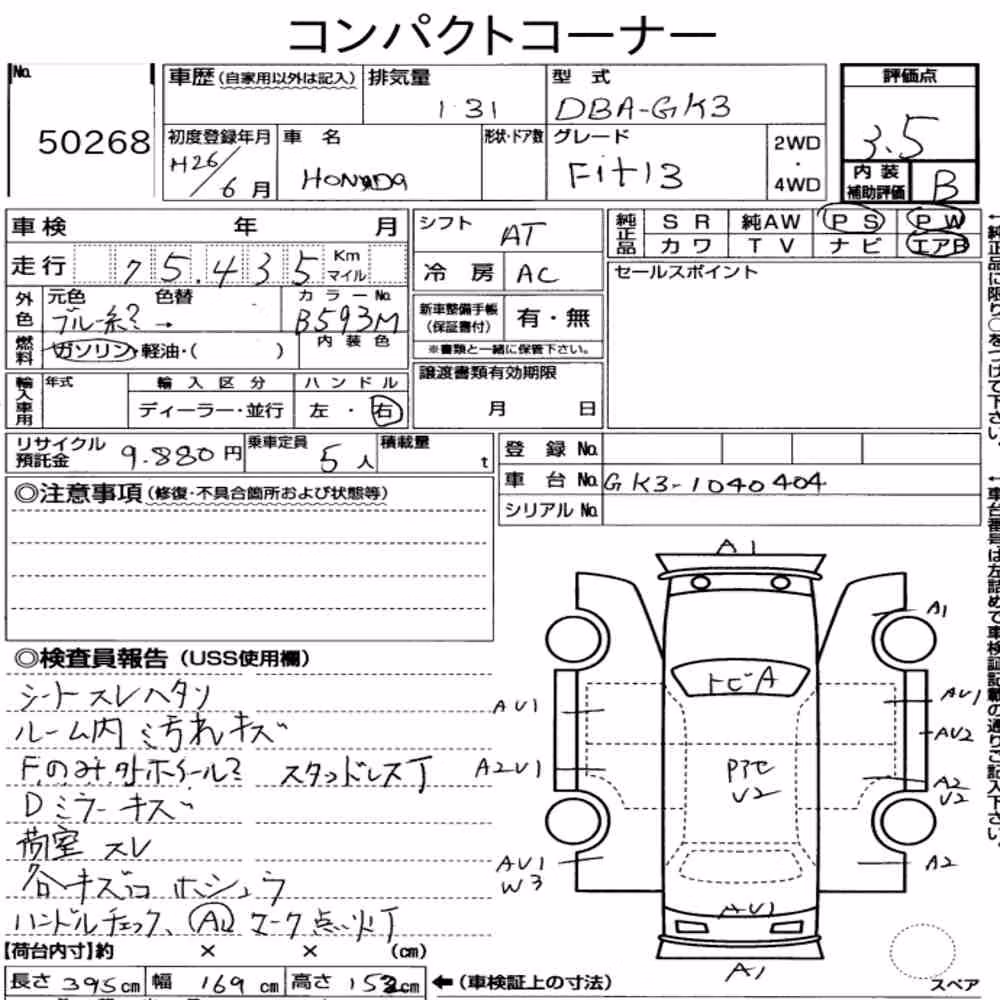 コンパクトコーナー
No. 50268
車歴(自家用以外は記入)
排気量 1.31
型式 DBA-GK3
評価点 3.5
初度登録年月 H26/6月
車名 HONDA
形状・ドア数
グレード Fit13
2WD・4WD
内装補助評価 B
車検 年 月
シフト AT
純正品 SR 純AW PS PW
カワ TV ナビ エアB
走行 75.435 Km マイル
冷房 AC
セールスポイント
外色 元色 ブルー系 色替 → カラーNo. B593M
新車整備手帳(保証書付) 有・無
※書類と一緒に保管下さい。
燃料 ガソリン・軽油・( ) 内装色
譲渡書類有効期限 月 日
輸入車用 年式 輸入区分 ハンドル
ディーラー・並行 左・右
リサイクル預託金 9.880円
乗車定員 5人
積載量 t
登録No.
車台No. GK3-1040404
シリアルNo.
◎注意事項(修復・不具合箇所および状態等)
◎検査員報告(USS使用欄)
シートスレハタリ
ルーム内 汚れキズ
Fのみ外ホイール スタッドレス
Dミラーキズ
荷室スレ
各キズ凹 ホシュウ
ハンドルチェック、(A) マーク点火
【荷台内寸】約 × × (cm)
長さ 395cm 幅 169cm 高さ 152cm ←(車検証上の寸法)
A1
A1
トビA
AU1
AU1
AU2
A2U1
Pアセ
U2
A2
U2
AU1
W3
A2
AU1
A1
スペア
←純正品に限り○をつけて下さい。
←車台番号は左詰めで車検証記載の通りご記入下さい。